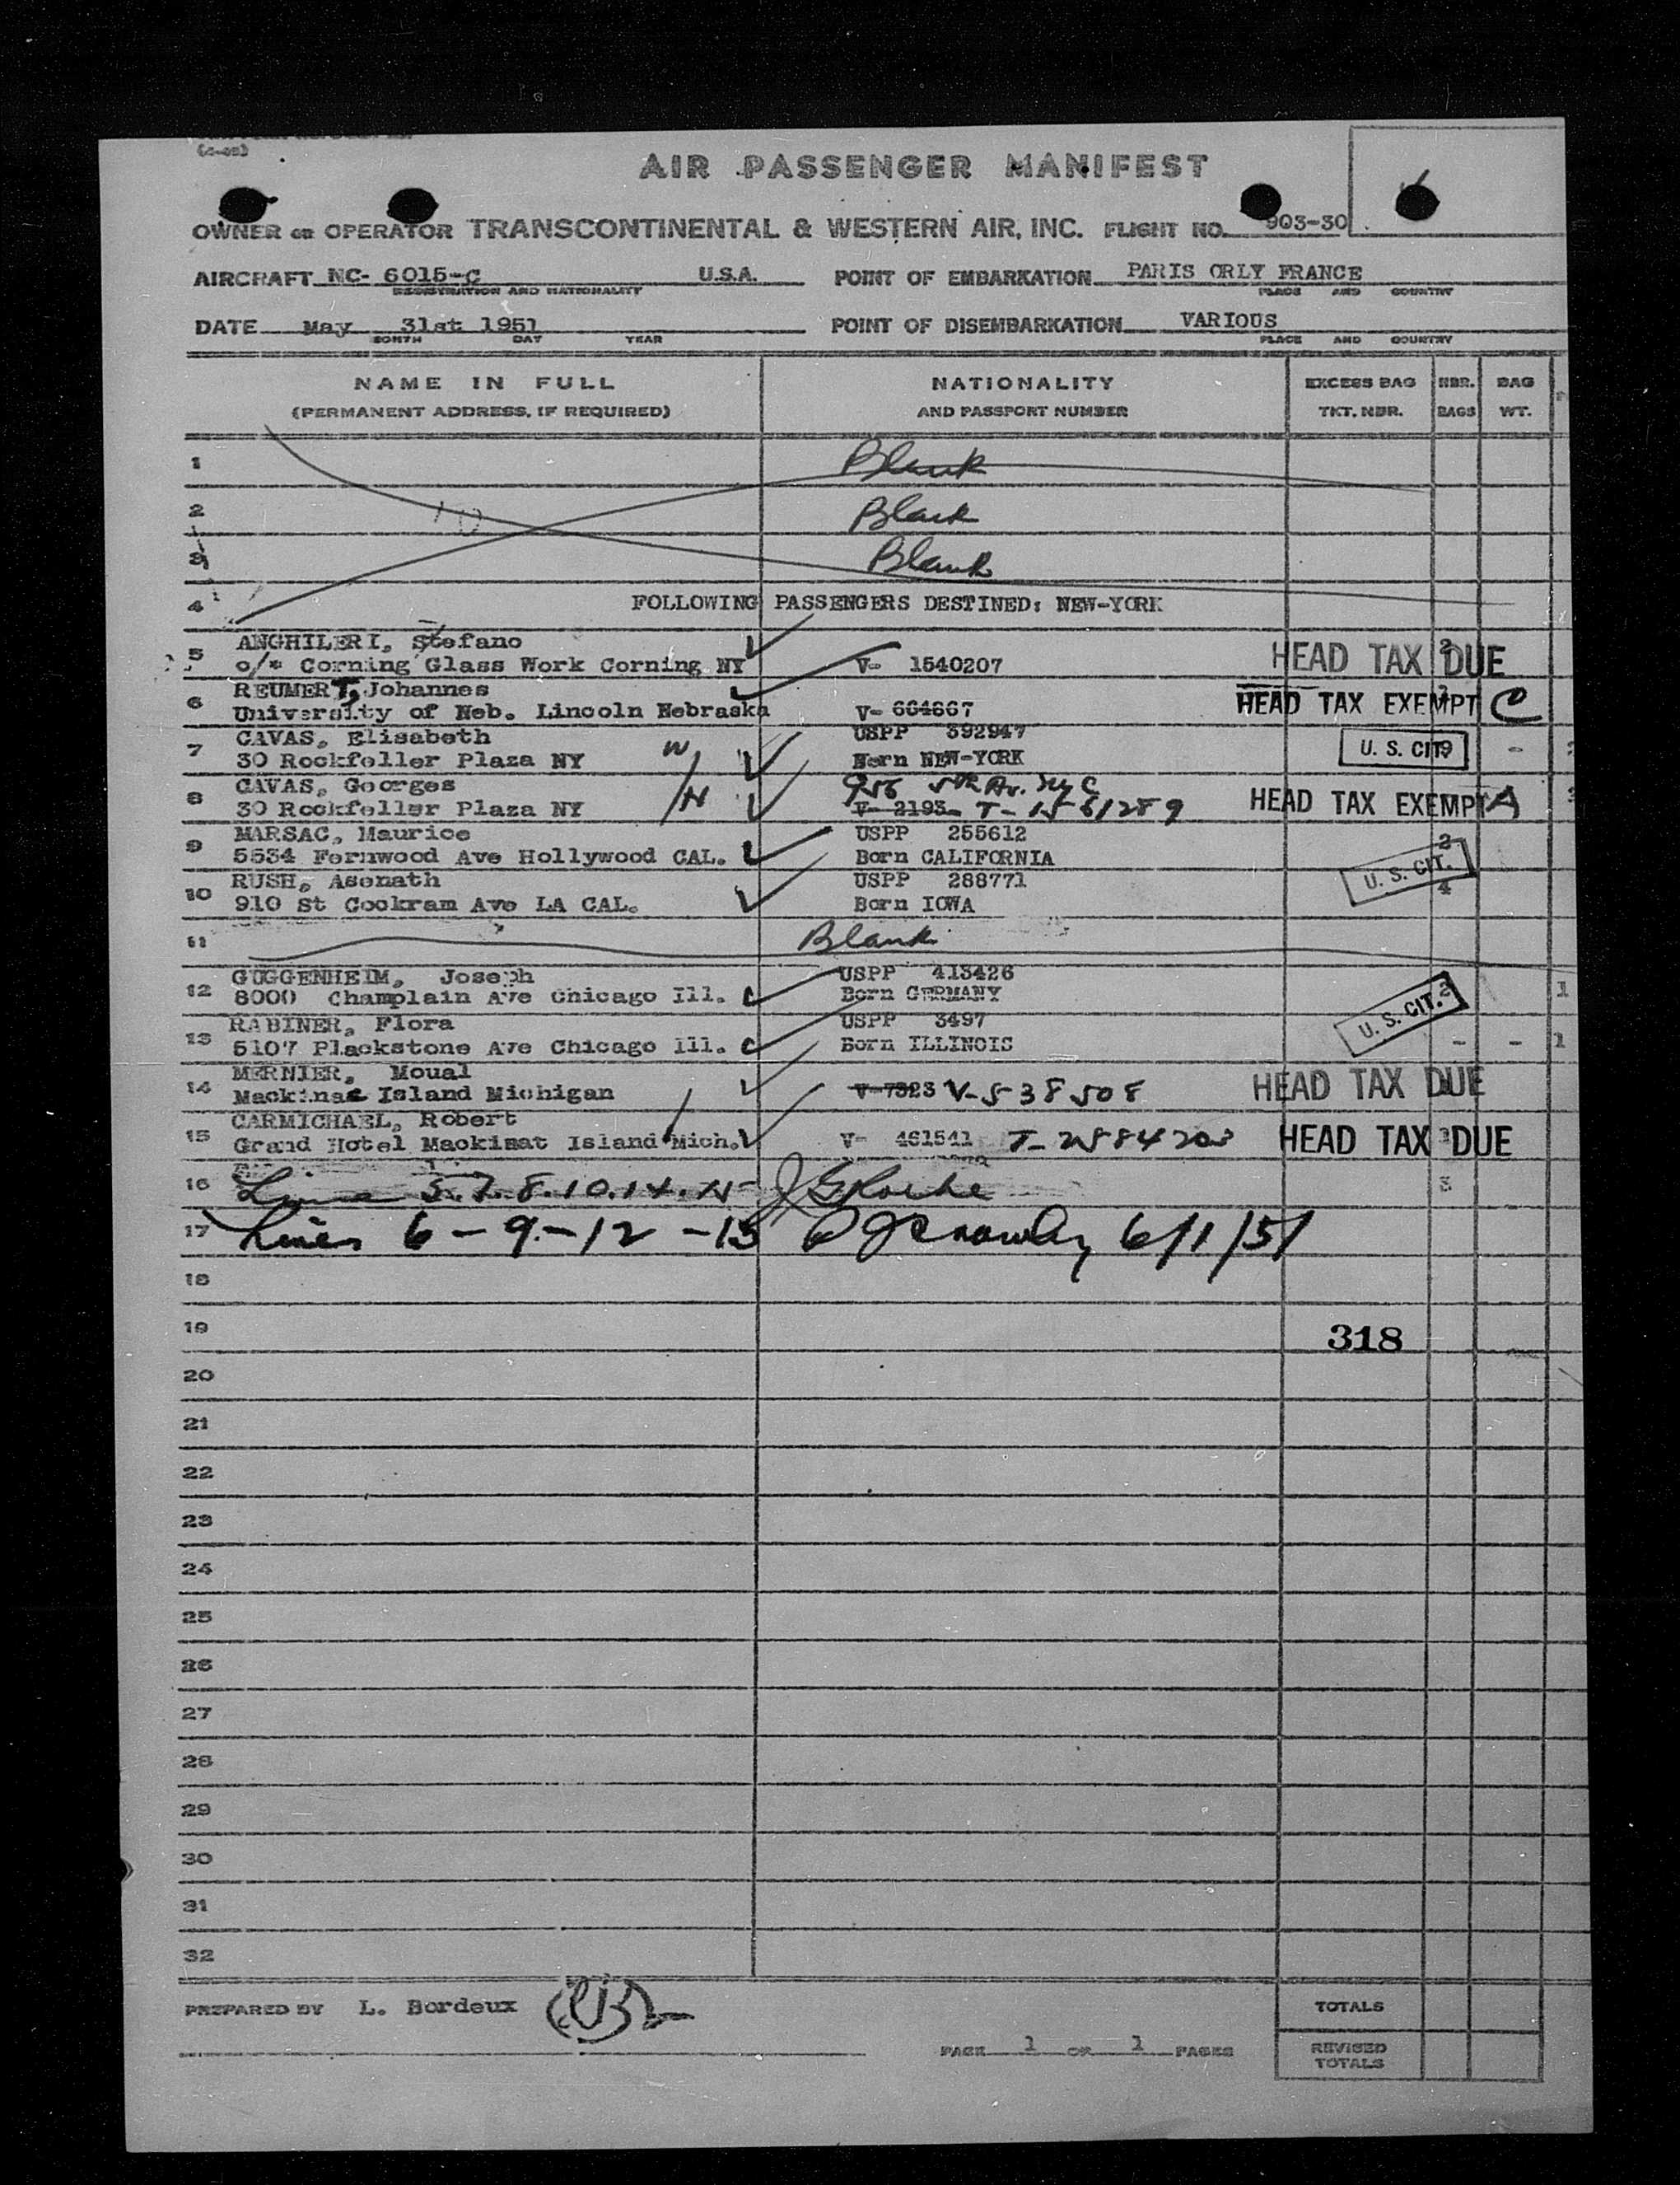 (4-48)
AIR PASSENGER MANIFEST
OWNER OR OPERATOR TRANSCONTINENTAL & WESTERN AIR, INC. FLIGHT NO. 903-30
AIRCRAFT NC- 6015-C U.S.A. POINT OF EMBARKATION PARIS ORLY FRANCE
REGISTRATION AND NATIONALITY PLACE AND COUNTRY
DATE May 31st 1951 POINT OF DISEMBARKATION VARIOUS
MONTH DAY YEAR PLACE AND COUNTRY
NAME IN FULL NATIONALITY EXCESS BAG NBR. BAG
(PERMANENT ADDRESS, IF REQUIRED) AND PASSPORT NUMBER TKT. NBR. BAGS WT.
1 Blank
2 Blank
3 Blank
4 FOLLOWING PASSENGERS DESTINED: NEW-YORK
5 ANGHILERI, Stefano
Corning Glass Work Corning NY V- 1540207 HEAD TAX DUE
6 REUMERT, Johannes
University of Neb. Lincoln Nebraska V- 664667 HEAD TAX EXEMPT C
7 CAVAS, Elisabeth USPP 392947
30 Rockfeller Plaza NY W Born NEW-YORK U. S. CIT. -
8 CAVAS, Georges 956 5th Av. NYC
30 Rockfeller Plaza NY H V- 2193- T-1561289 HEAD TAX EXEMPT A
9 MARSAC, Maurice USPP 255612 2
5534 Fernwood Ave Hollywood CAL. Born CALIFORNIA U. S. CIT.
10 RUSH, Asenath USPP 288771 4
910 St Cockram Ave LA CAL. Born IOWA
11 Blank
12 GUGGENHEIM, Joseph USPP 413426
8000 Champlain Ave Chicago Ill. Born GERMANY U. S. CIT. 2 1
13 RABINER, Flora USPP 3497
5107 Plackstone Ave Chicago Ill. Born ILLINOIS - - 1
14 MERNIER, Moual
Mackinac Island Michigan V-7323 V-538508 HEAD TAX DUE
15 CARMICHAEL, Robert
Grand Hotel Mackinat Island Mich. V- 461541 T-2884203 HEAD TAX DUE
16 Lines 5.7.8.10.14.15 3
17 Lines 6-9-12-13 6/1/51
18
19 318
20
21
22
23
24
25
26
27
28
29
30
31
32
PREPARED BY L. Bordeux TOTALS
PAGE 1 OF 1 PAGES REVISED
TOTALS